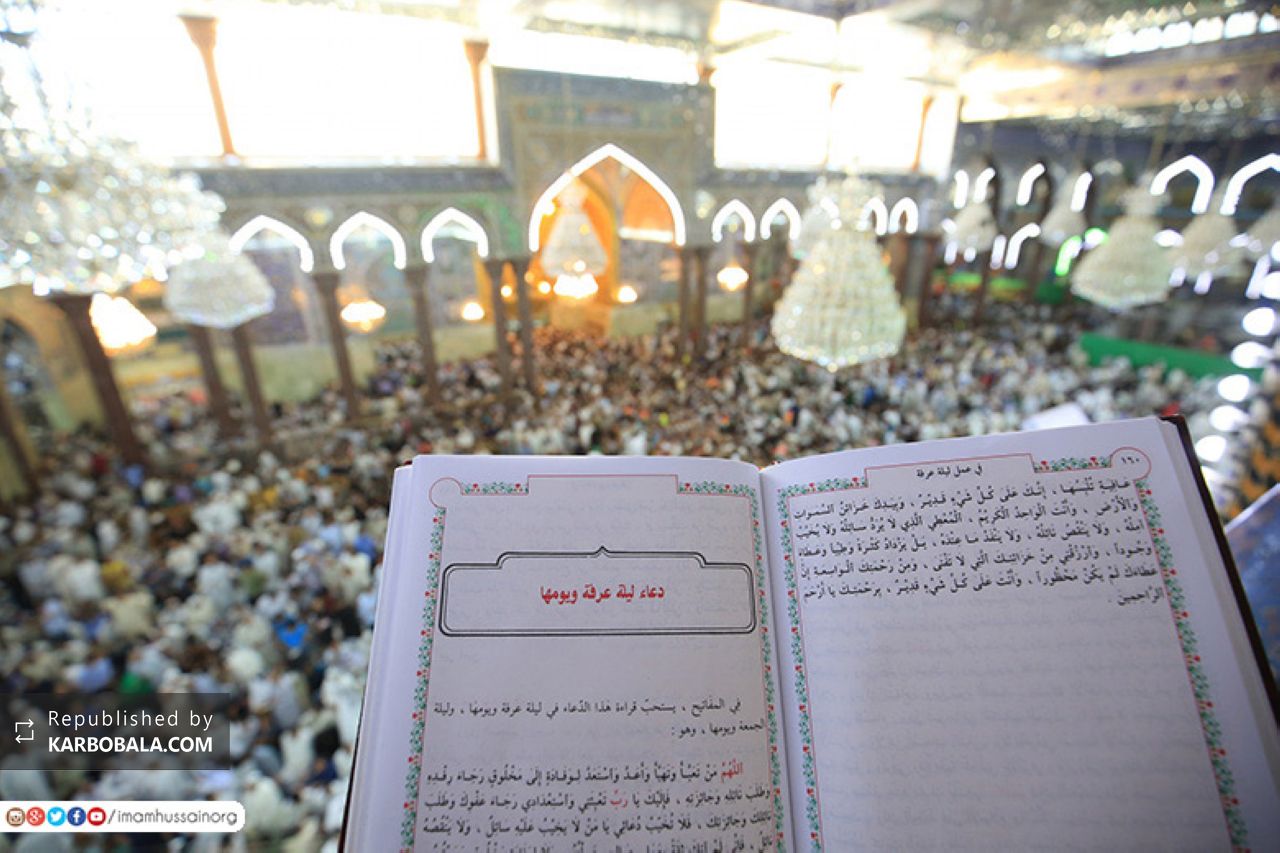 في عمل ليلة عرفة
١٦٠
عـافِيَـةٍ تُلْبِسُهـا ، إِنَّـكَ عَلى كُـلِّ شَيْءٍ قَـديـرٌ ، وَبِيَـدِكَ خَـزائِنُ السَّمـواتِ
وَالأَرْضِ ، وَأَنْتَ الْواحِدُ الْكَريمُ ، الْمُعْطِي الَّذِي لا يُرَدُّ سـائِلُهُ وَلا يُخَيَّبُ
آمِلُهُ ، وَلا يَنْقُصُ نائِلُهُ ، وَلا يَنْفَدُ مـا عِنْدَهُ ، بَـلْ يَزْدادُ كَثْـرَةً وَطِيْبًا وَعَطـاءً
وَجُـوداً ، وَارْزُقْنِي مِنْ خَزائِنِـكَ الَّتِي لا تَفْنَى ، وَمِنْ رَحْمَتِكَ الْـواسِعَةِ إِنَّ
عَطاءَكَ لَمْ يَكُنْ مَحْظُوراً ، وَأَنْتَ عَلى كُـلِّ شَيْءٍ قَديْرٌ ، بِرَحْمَتِـكَ يا أَرْحَمَ
الرَّاحِمِينَ .
دعاء ليلة عرفة ويومها
في المفاتيح ، يستحبّ قراءة هٰذا الدّعاء في ليلة عرفة ويومها ، وليلة
الجمعة ويومها ، وهو :
اللّٰهُمَّ مَنْ تَعَبَّـأَ وَتَهَيَّأَ وَأَعَـدَّ وَاسْتَعَدَّ لِـوِفـادَةٍ إِلَى مَخْلُوقٍ رَجَـاءَ رِفْـدِهِ
وَطَلَبَ نائِلِهِ وَجائِزَتِهِ ، فَإِلَيْكَ يا رَبِّ تَعْبِيَتِي وَاسْتِعْدادِي رَجـاءَ عَفْوِكَ وَطَلَبَ
نائِلِكَ وَجائِزَتِكَ ، فَلا تُخَيِّبْ دُعائِي يا مَنْ لا يَخِيْبُ عَلَيْهِ سائِلٌ ، وَلا يَنْقُصُهُ
Republished by
KARBOBALA.COM
/imamhussainorg